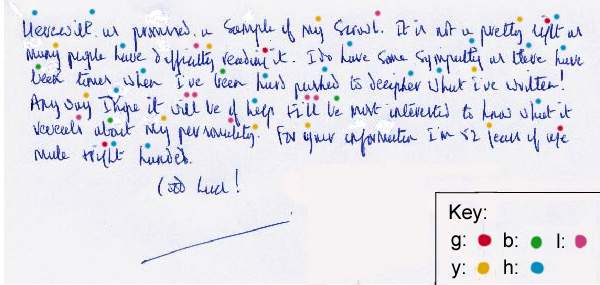 Herewith as promised a sample of my scrawl. It is not a pretty sight as
many people have difficulty reading it. I do have some sympathy as there have
been times when I've been hard pushed to decipher what I've written!
Any way I hope it will be of help I'll be most interested to know what it
reveals about my personality. For your information I'm 52 years of age
male right handed.
Good luck!
Key:
g: b: l:
y: h: